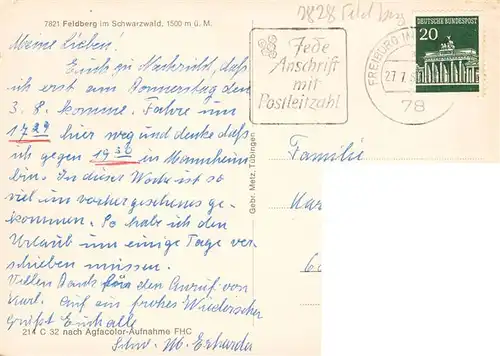 7821 Feldberg im Schwarzwald, 1500 m ü. M.
7828 Feldberg
Meine Lieben!
Euch zu Nachricht, daß
ich erst am Donnerstag den
3. 8. komme. Fahre um
17 29 hier weg und denke daß
ich gegen 19 30 in Mannheim
bin. In dieser Woche ist so
viel unvorhergesehenes ge-
kommen. So habe ich den
Urlaub um einige Tage ver-
schieben müssen.
Vielen Dank für den Anruf von
Karl. Auf ein frohes Wiedersehen
grüßt Euch alle
Schw. M. Erharda
214 C 32 nach Agfacolor-Aufnahme FHC
Gebr. Metz, Tübingen
Jede
Anschrift
mit
Postleitzahl
FREIBURG
27.7.
78
DEUTSCHE BUNDESPOST
20
Familie
Kar